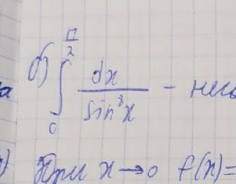 б) ∫₀^{π/2} dx / sin³x –
При x → 0 f(x) =